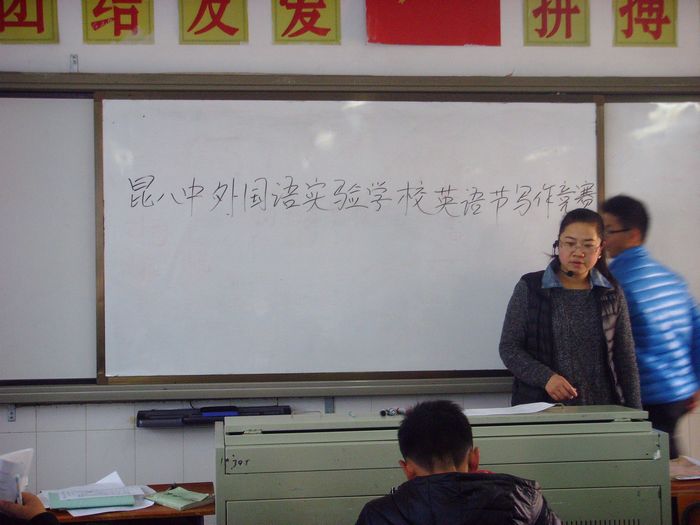 团结友爱 拼搏
昆八中外国语实验学校英语节写作竞赛